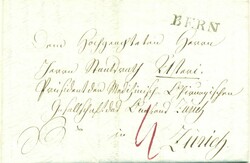 BERN
Dem Hochgeachteten Herrn
Herrn Staatsrath Usteri.
Präsident der Medizinisch Chirurgischen
Gesellschaft des Cantons Zürich
in
Zürich